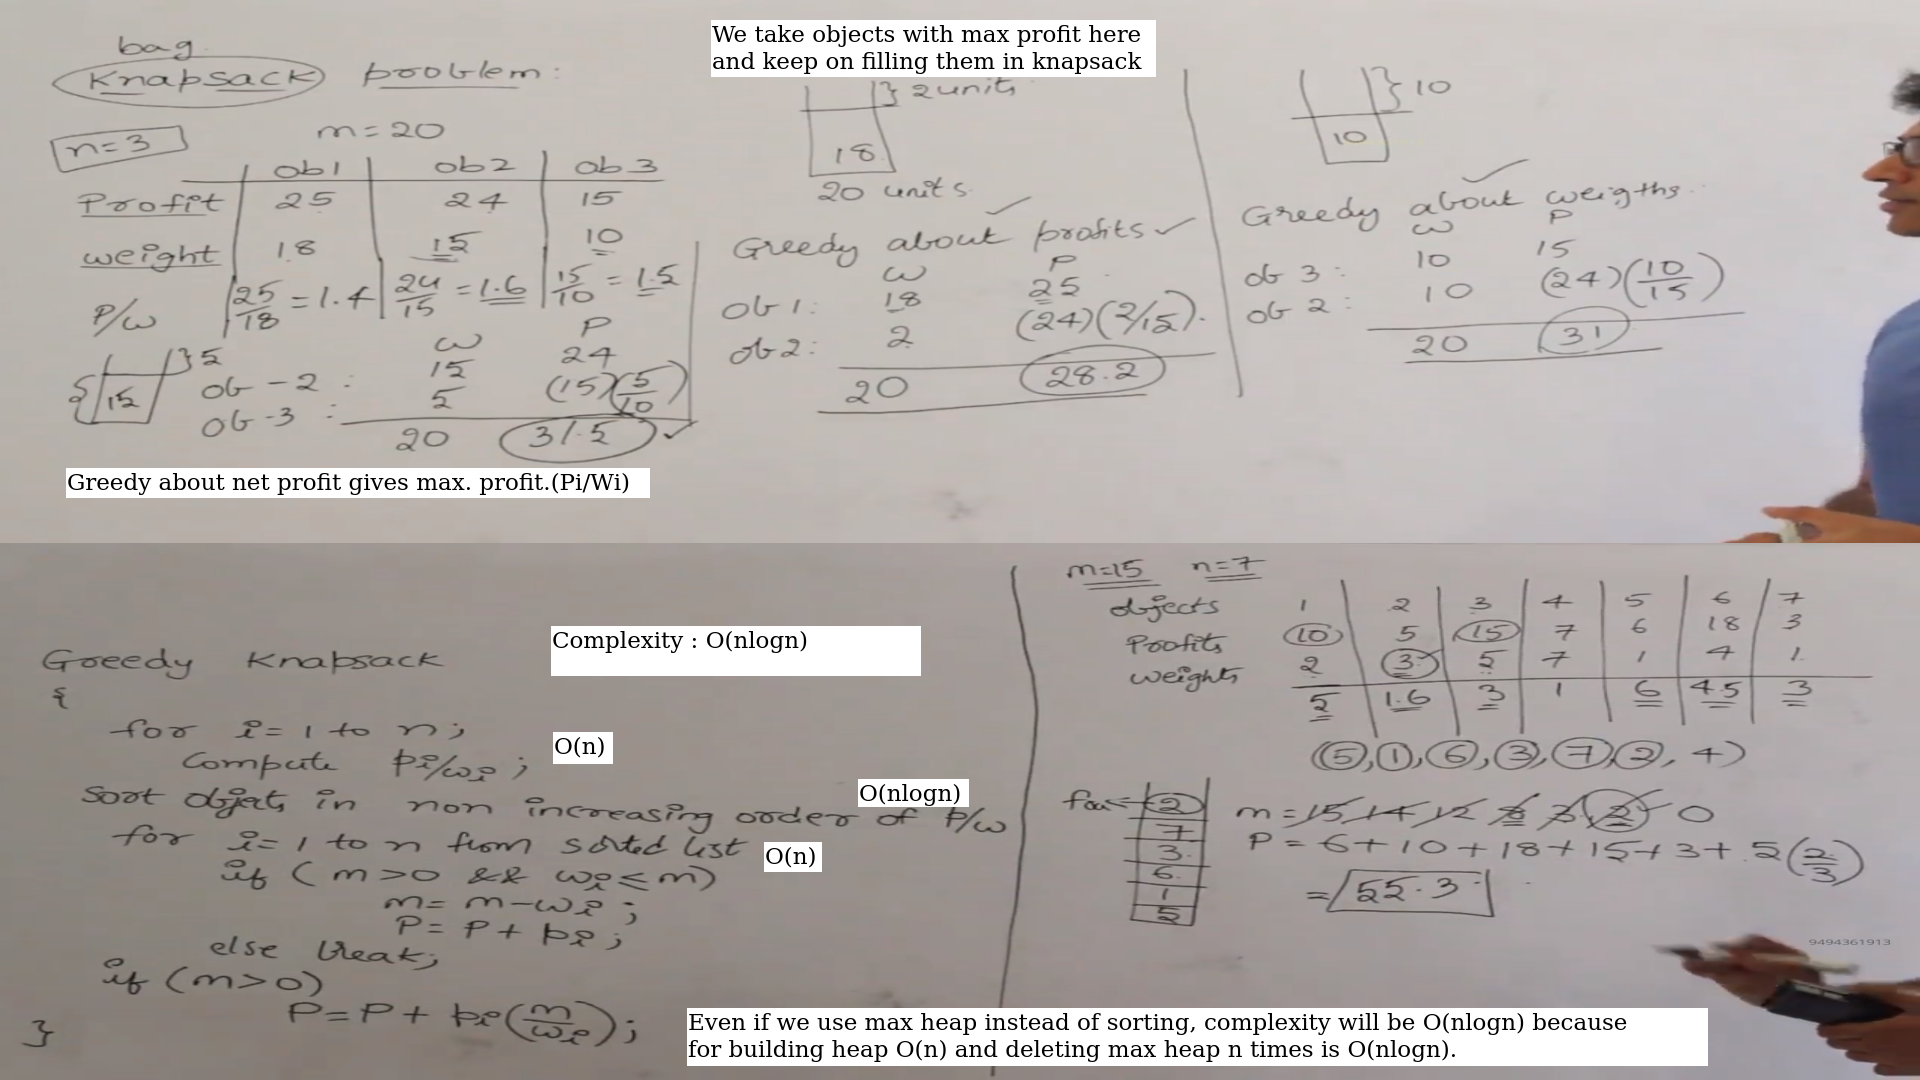 bag
Knapsack problem:
n=3
m=20
ob1 ob2 ob3
Profit 25 24 15
weight 18 15 10
P/w 25/18 = 1.4 24/15 = 1.6 15/10 = 1.5
}5
15
w P
ob-2 : 15 24
ob-3 : 5 (15)(5/10)
20 31.5
Greedy about net profit gives max. profit.(Pi/Wi)
We take objects with max profit here
and keep on filling them in knapsack
}2units
18
20 units
Greedy about profits
w P
ob1: 18 25
ob2: 2 (24)(2/15).
20 28.2
}10
10
Greedy about weigths..
w P
ob 3 : 10 15
ob 2 : 10 (24)(10/15)
20 31
Greedy Knapsack
Complexity : O(nlogn)
{
for i=1 to n;
O(n)
Compute pi/wi ;
O(nlogn)
Sort objects in non increasing order of P/w
for i=1 to n from sorted list
O(n)
if ( m>0 && wi≤m)
m= m-wi ;
P= P+pi ;
else break;
if (m>0)
P=P+ pi(m/wi);
}
m=15 n=7
objects 1 2 3 4 5 6 7
Profits 10 5 15 7 6 18 3
weights 2 3 5 7 1 4 1
5 1.6 3 1 6 4.5 3
(5,1,6,3,7,2,4)
2
7
3
6
1
5
m=15 14 12 8 3 2 0
P = 6+10+18+15+3+5(2/3)
= 55.3
9494361913
Even if we use max heap instead of sorting, complexity will be O(nlogn) because
for building heap O(n) and deleting max heap n times is O(nlogn).